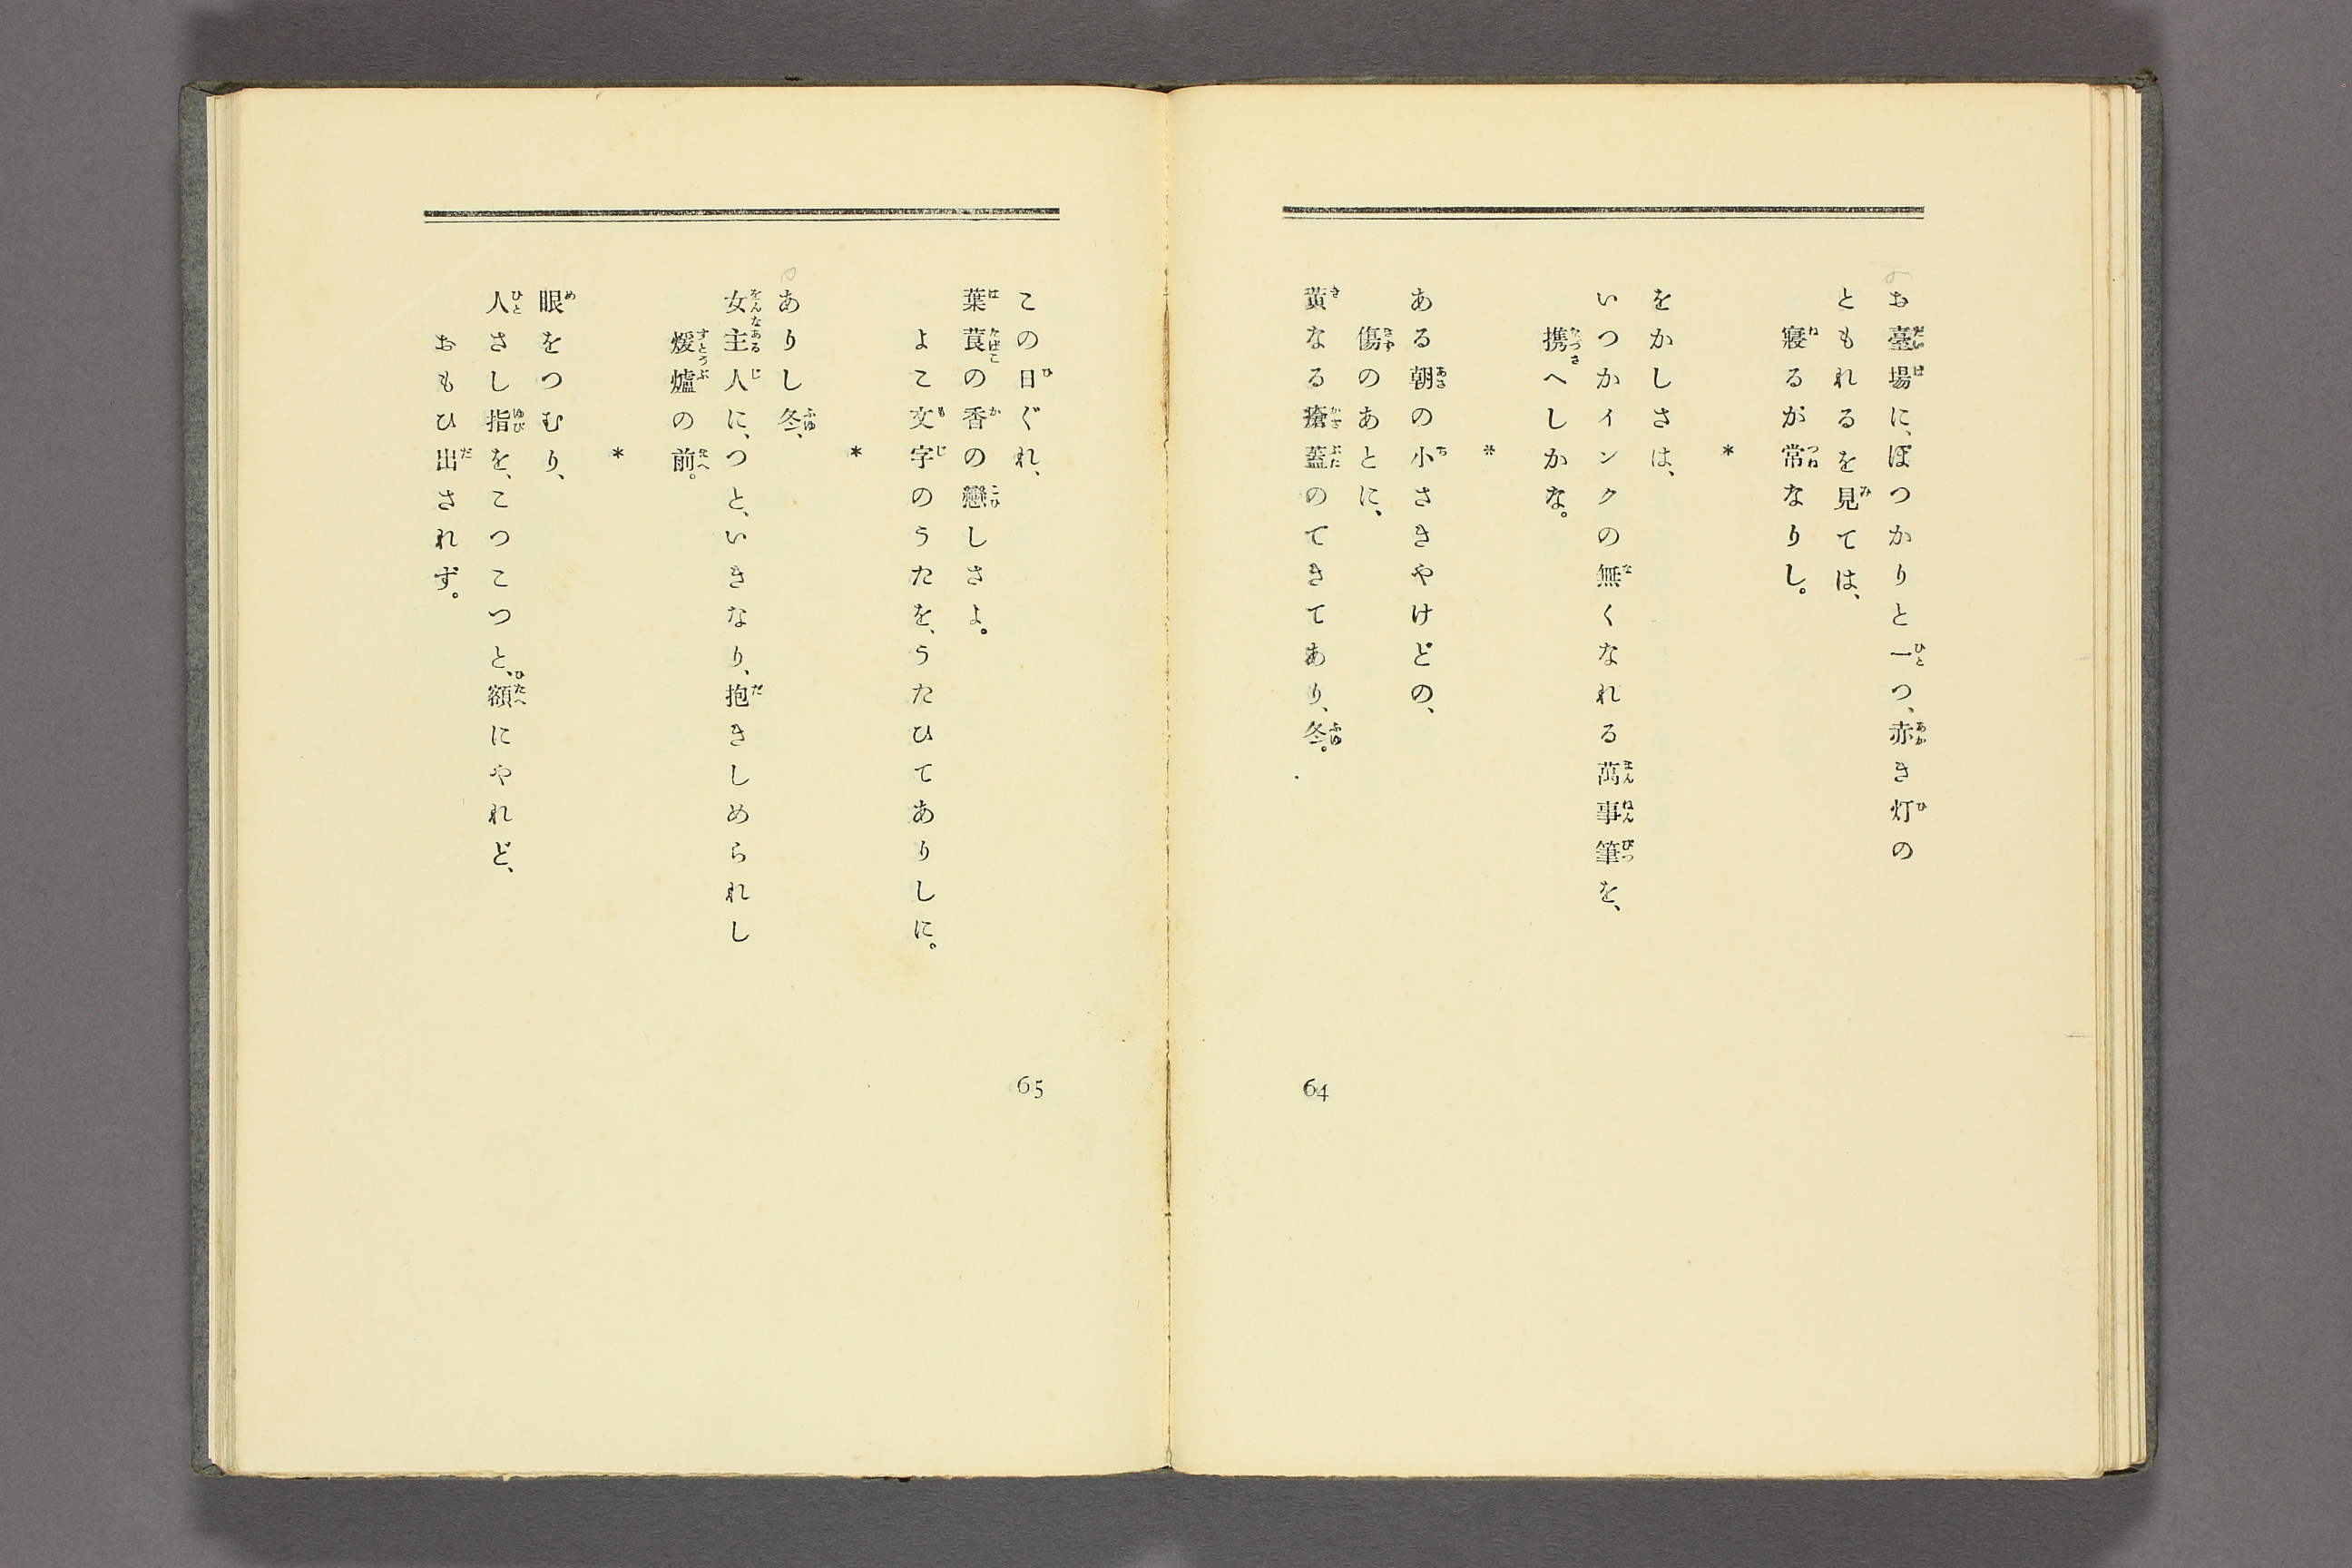 お臺場に、ぽつかりと一つ、赤き灯の
ともれるを見ては、
寢るが常なりし。
*
をかしさは、
いつかインクの無くなれる萬事筆を、
携へしかな。
*
ある朝の小さきやけどの、
傷のあとに、
黄なる瘡蓋のてきてあり、冬。
64
この日ぐれ、
葉莨の香の戀しさよ。
よこ文字のうたを、うたひてありしに。
*
ありし冬、
女主人に、つと、いきなり、抱きしめられし
煖爐の前。
*
眼をつむり、
人さし指を、こつこつと、額にやれど、
おもひ出されず。
65